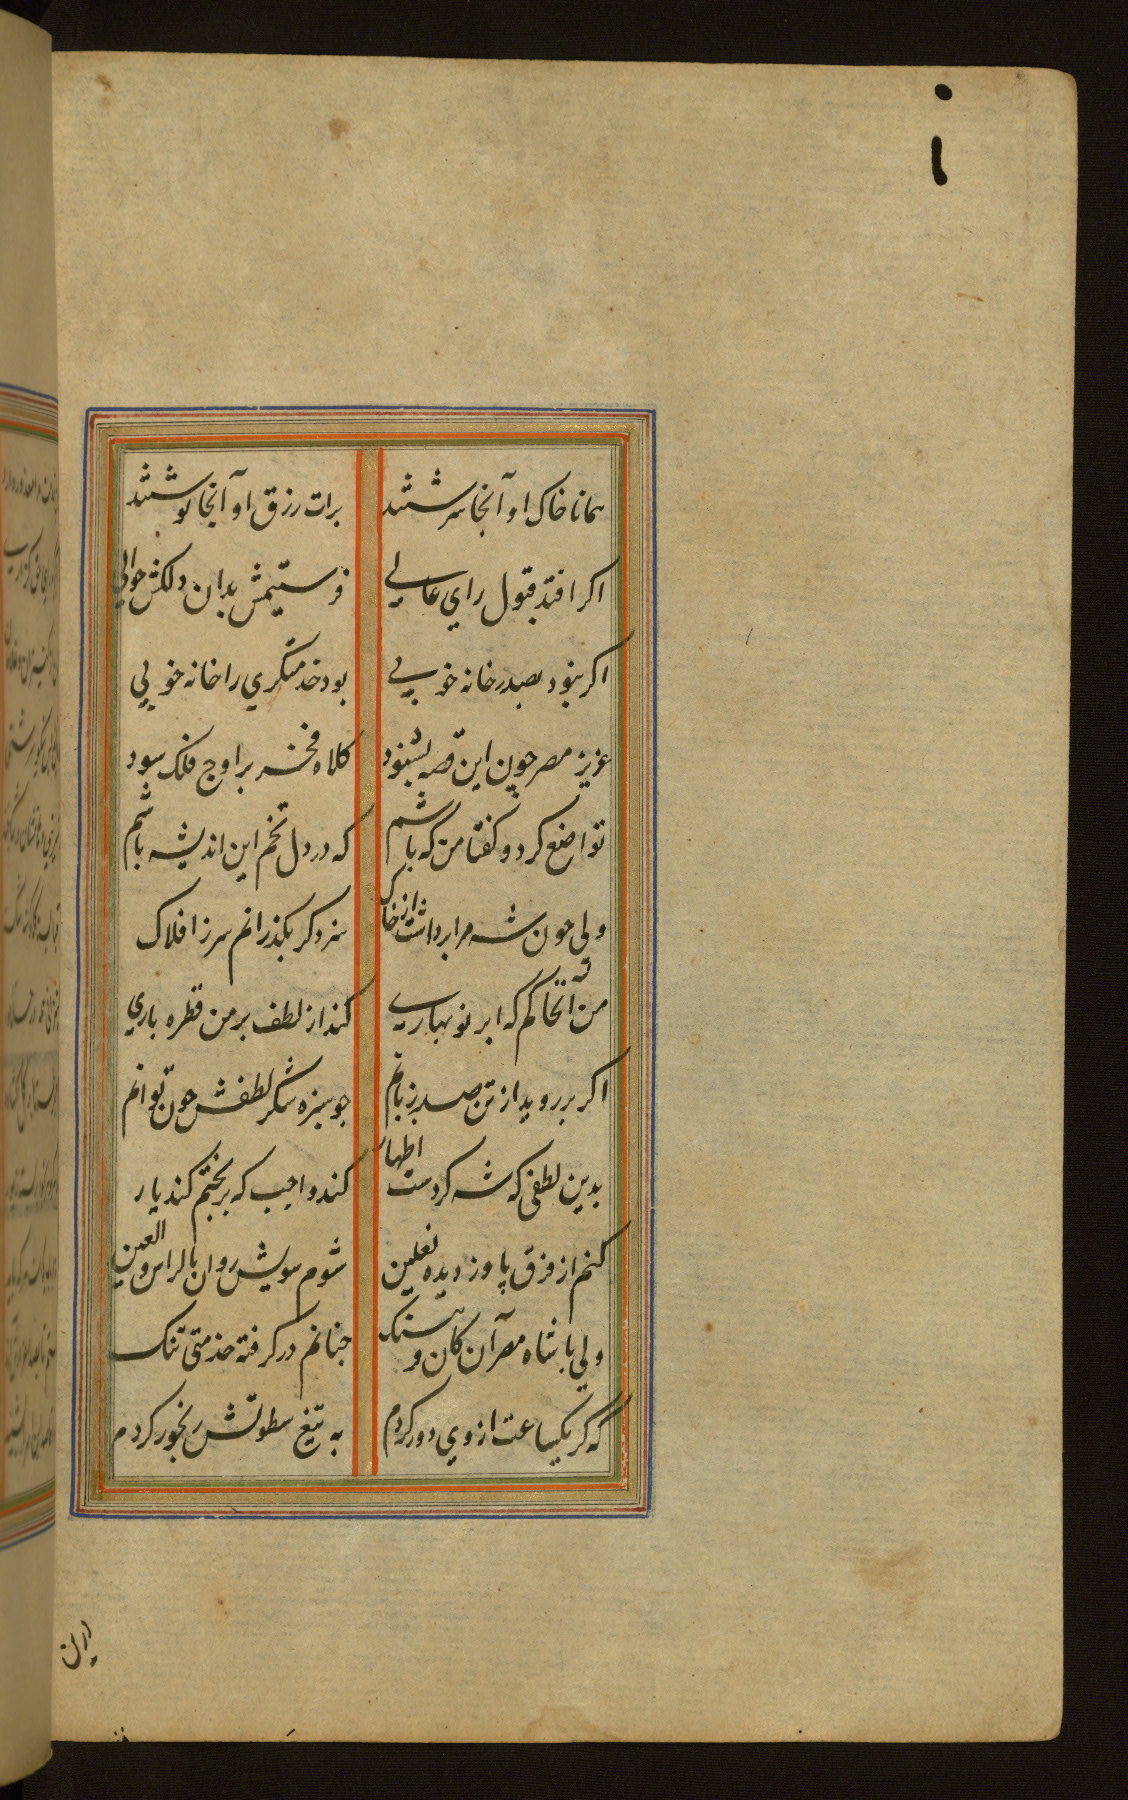 همانا خاک او آنجا سرشتند برات رزق او آنجا نوشتند
اکر افتد قبول راي عالي فرستيمش بدان دلکش حوالي
اکر نبود بصدر خانه خوبي بود خدمتکري را خانه خوبي
عزيز مصر چون اين قصه بشنود کلاه فخر بر اوج فلک سود
تواضع کرد و کفتا من که باشم که در دل تخم اين انديشه باشم
ولي چون شه مرا برداشت از خاک سزد کر بکذرانم سر ز افلاک
من آن خاکم که ابر نوبهاري کند از لطف بر من قطره باري
اکر بر رويد از تن صد زبانم چو سبزه شکر لطفش چون توانم
بدين لطفى که شه کردست اظهار کند واجب که بر بختم کند يار
کنم از فرق پا وز ديده نعلين شوم سويش روان بالراس والعين
ولي با شاه مصر آن کان فرهنک چنانم در کرفته خدمتى تنک
که گر يکساعت از وي دور کردم به تيغ سطوتش رنجور کردم
درين